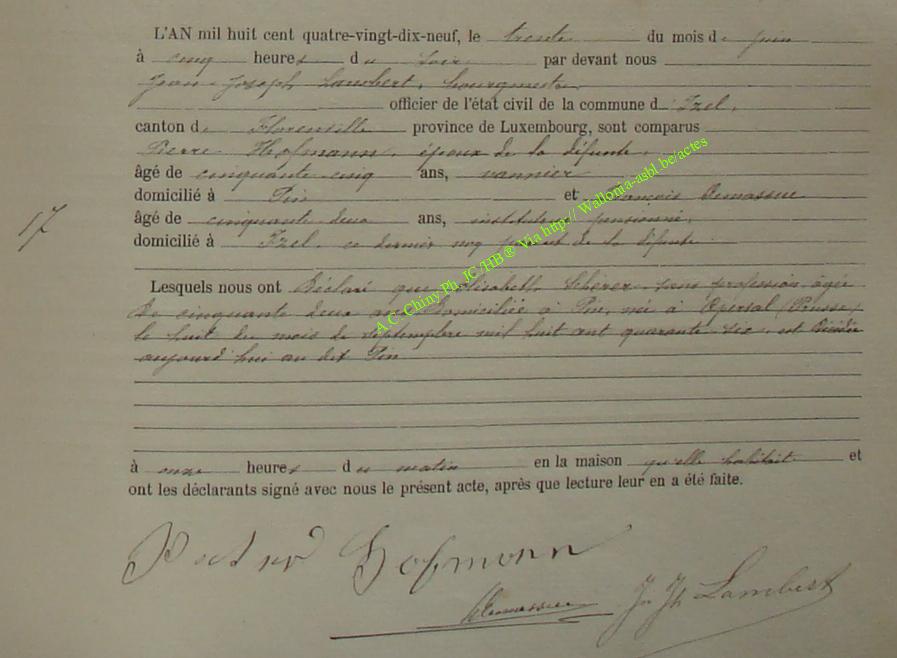 L'AN mil huit cent quatre-vingt-dix-neuf, le trente du mois de juin
à cinq heures du soir par devant nous
Jean Joseph Lambert, bourgmestre
officier de l'état civil de la commune d'Izel,
canton de Florenville province de Luxembourg, sont comparus
Pierre Hofmann, époux de la défunte,
âgé de cinquante cinq ans, vannier
domicilié à Pin et François Demasseue
âgé de cinquante deux ans, instituteur pensionné,
domicilié à Izel, ce dernier non parent de la défunte
17
Lesquels nous ont déclaré que Elisabeth Scherer sans profession âgée
de cinquante deux ans domiciliée à Pin, née à (Prusse)
le huit du mois de septembre mil huit cent quarante six, est décédée
aujourd'hui au dit Pin
à onze heures du matin en la maison qu'elle habitait et
ont les déclarants signé avec nous le présent acte, après que lecture leur en a été faite.
Hofmann
Jn Jh Lambert
A.C. Chiny Ph. JC /HB ® Via http:// Wallonia-asbl.be/actes